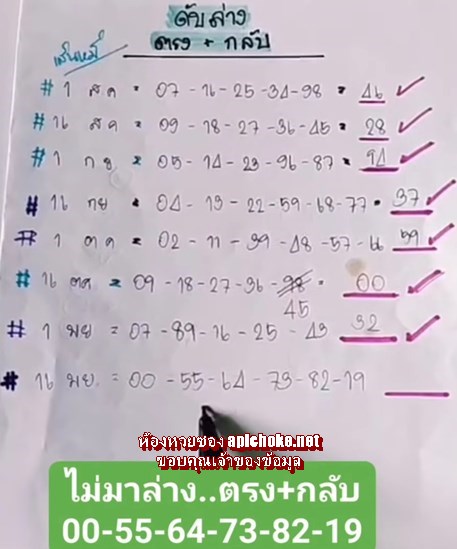 ดับล่าง
ตรง + กลับ
# 1 สค = 07-16-25-34-98 = 46 ✓
# 16 สค = 09-18-27-36-45 = 28 ✓
# 1 กย = 05-14-23-96-87 = 94 ✓
# 16 กย = 04-13-22-59-68-77 = 37 ✓
# 1 ตค = 02-11-39-48-57-66 59 ✓
# 16 ตค = 09-18-27-36-98 = 00 ✓
45
# 1 พย = 07-89-16-25-43 32 ✓
# 16 พย. = 00-55-64-73-82-19
ห้องหวยซอง apichoke.net
ขอบคุณเจ้าของข้อมูล
ไม่มาล่าง..ตรง+กลับ
00-55-64-73-82-19